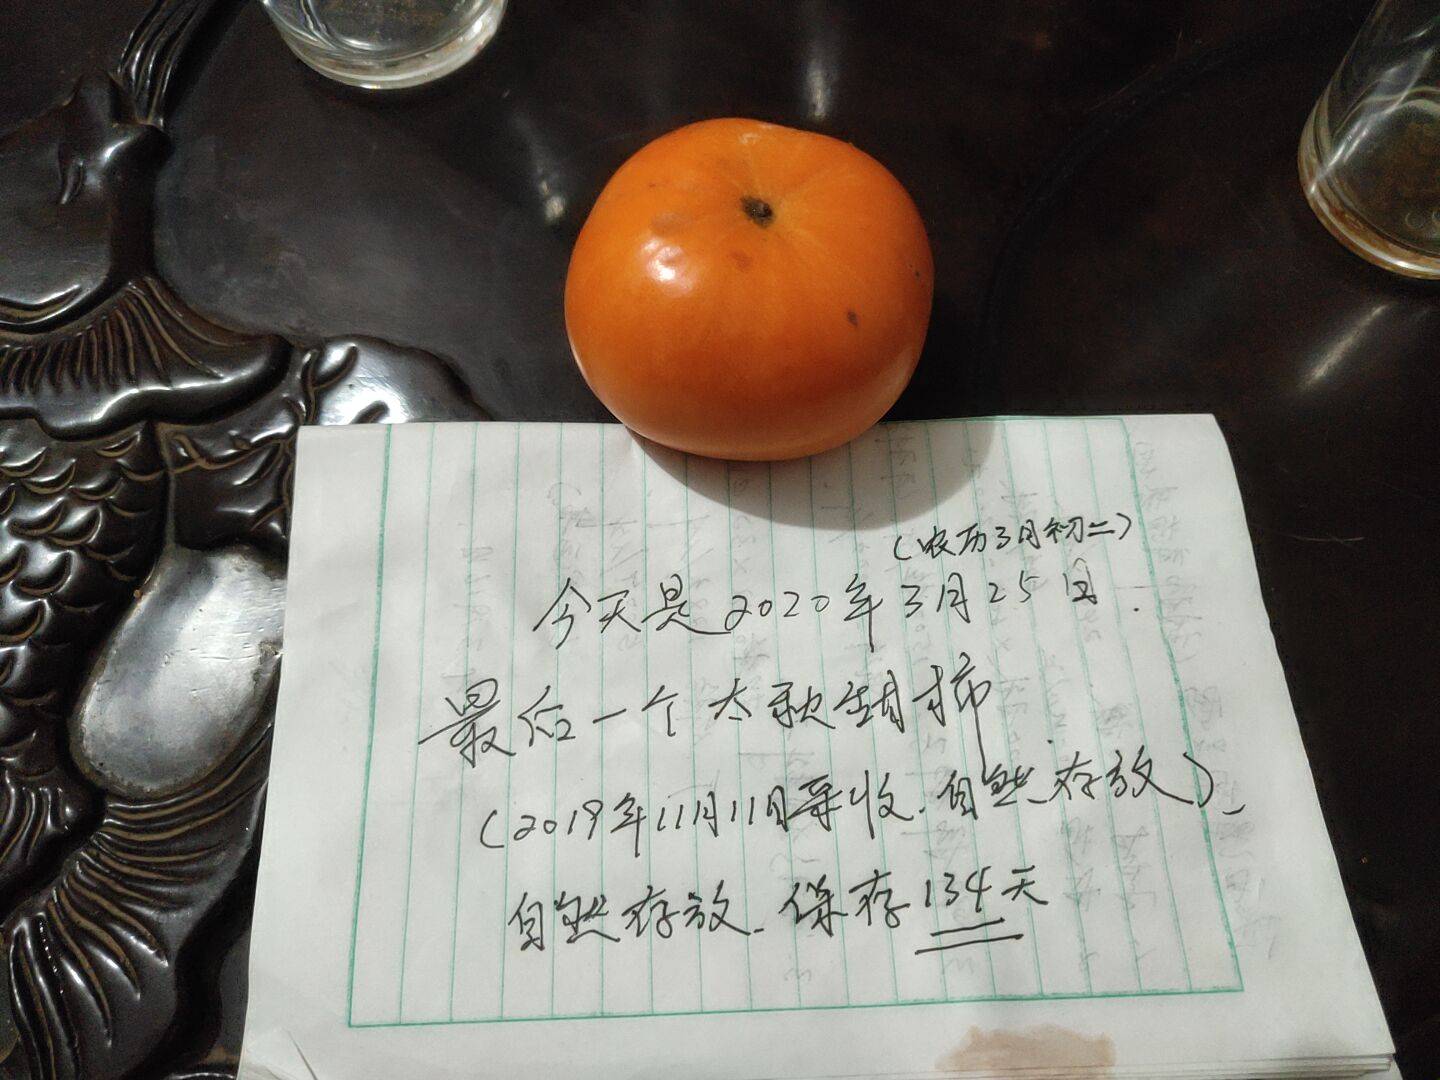 (农历3月初二)
今天是2020年3月25日.
最后一个太秋甜柿
(2019年11月11日采收.自然存放)、
自然存放.保存134天